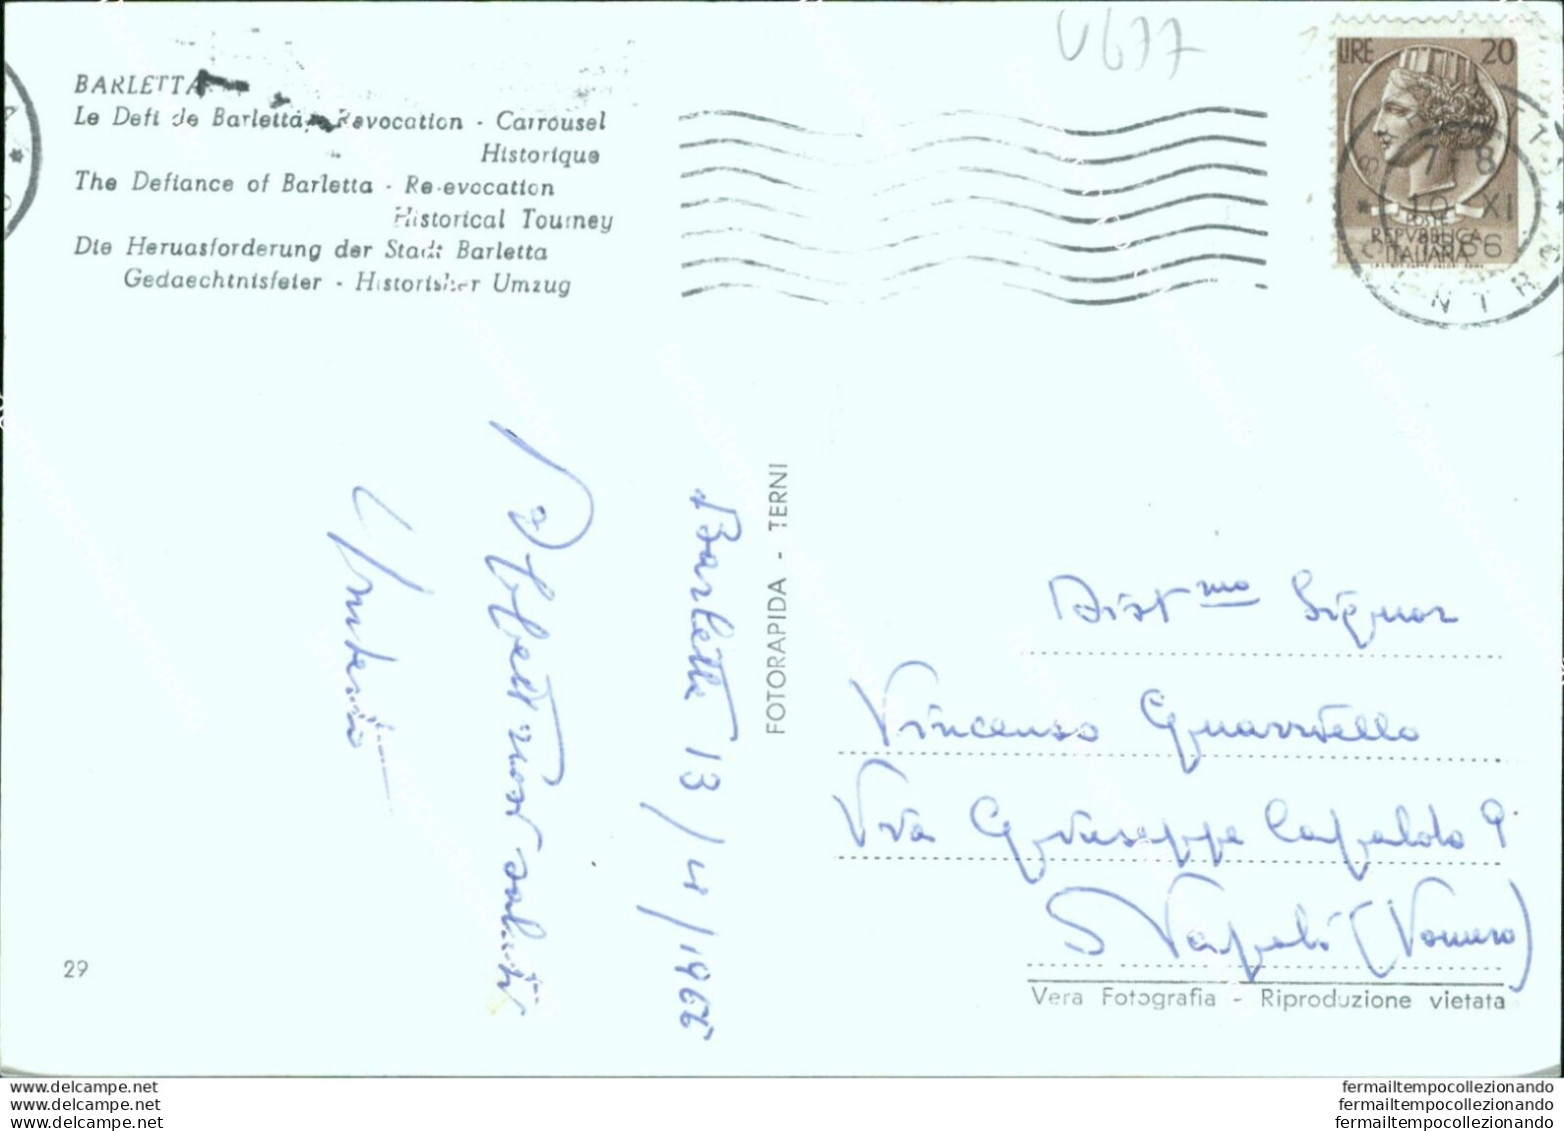 U677
BARLETTA
Le Defi de Barletta - Revocation - Carrousel
Historique
The Defiance of Barletta - Re-evocation
Historical Tourney
Die Heruasforderung der Stadt Barletta
Gedaechtnisfeier - Historisher Umzug
LIRE 20
7-8
10 XI
1966
POSTE
REPVBBLICA
ITALIANA
CENTRO
Barletta 13/4/1966
Affettuosi saluti
FOTORAPIDA - TERNI
Distmo Signor
Vincenzo Guarriello
Via Giuseppe Capaldo 9
Napoli (Vomero)
29
Vera Fotografia - Riproduzione vietata
www.delcampe.net
www.delcampe.net
www.delcampe.net
fermailtempocollezionando
fermailtempocollezionando
fermailtempocollezionando